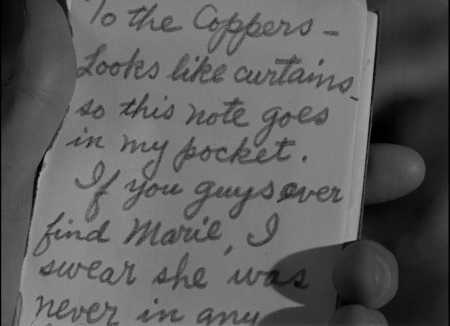 To the Coppers –
Looks like curtains –
so this note goes
in my pocket.
If you guys ever
find Marie, I
swear she was
never in any